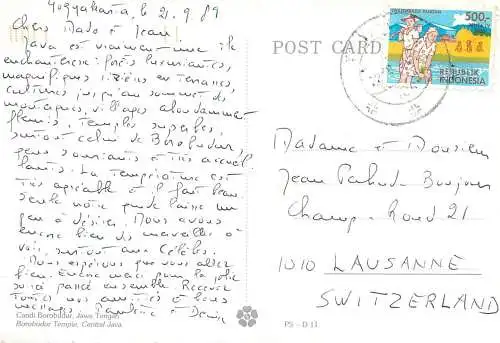 Yogyakarta, le 21.9.89
Chers Mado et Jean!
Java est vraiment une île
enchanteresse: forêts luxuriantes,
magnifiques rizières en terrasses,
cultures jusqu'au sommet des
montagnes, villages abondamment
fleuris, temples superbes,
surtout celui de Borobudur,
gens souriants et très accueil
lants. La température est
très agréable et il fait beau.
Seule notre guide laisse un
peu à désirer. Nous avons
encore bien des merveilles à
voir, surtout aux Célèbes.
Nous espérons que vous allez
bien. Encore merci pour la jolie
soirée passée ensemble. Recevez
toutes nos amitiés et bons
messages. et Denise
Candi Borobudur, Jawa Tengah.
Borobudur Temple, Central Java.
POST CARD
500-
REPUBLIK
INDONESIA
Madame et Monsieur
Jean Pahud-
Champ-Rond 21
1010 LAUSANNE
SWITZERLAND
PS - D 11